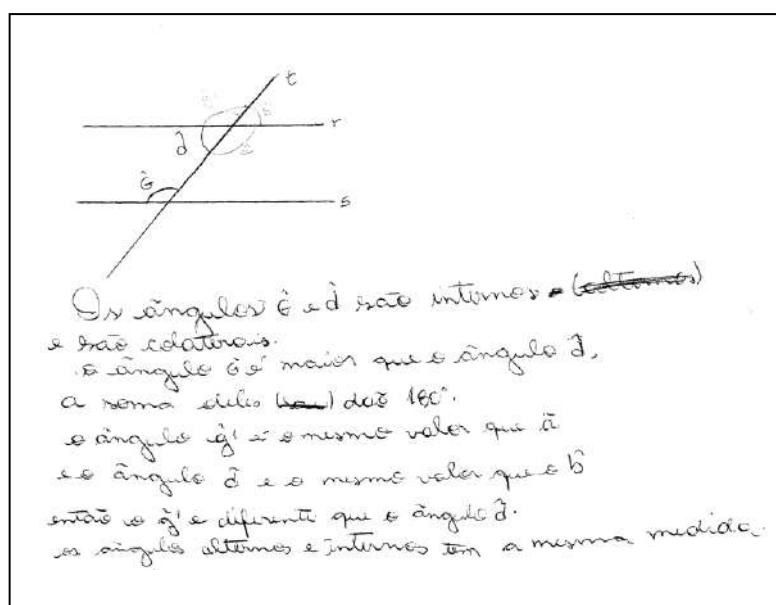 t
r
d̂
Ĝ
s
Os ângulos Ĝ e d̂ são internos
e são colaterais.
o ângulo Ĝ é maior que o ângulo d̂,
a soma deles daõ 180°.
o ângulo ĝ' é o mesmo valor que â
e o ângulo d̂ e o mesmo valor que o b̂
então o ĝ' e diferente que o ângulo d̂.
os ângulos alternos e internos tem a mesma medida.